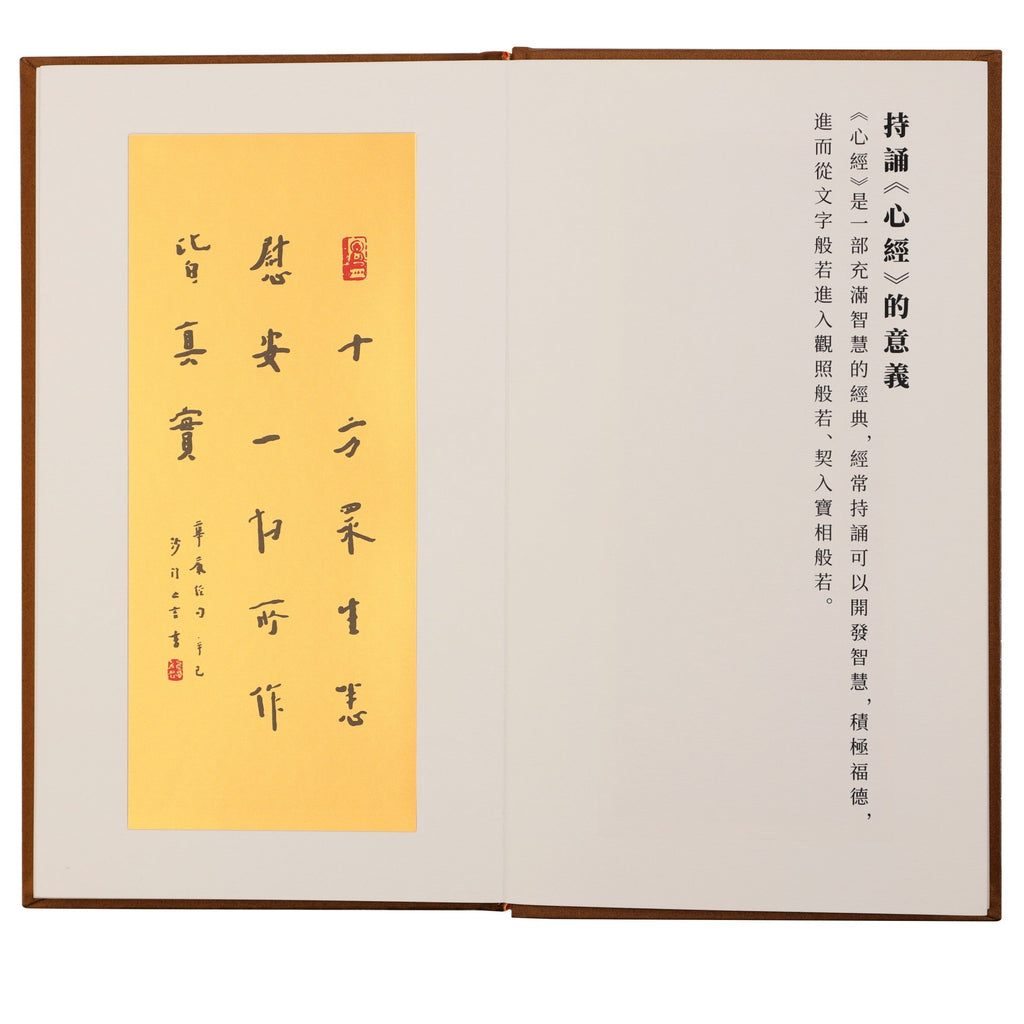 持誦《心經》的意義
《心經》是一部充滿智慧的經典，經常持誦可以開發智慧，積極福德，
進而從文字般若進入觀照般若、契入寶相般若。
十方眾生悉
慰安一切所作
皆真實
華嚴經句 辛巳
沙門亡言書